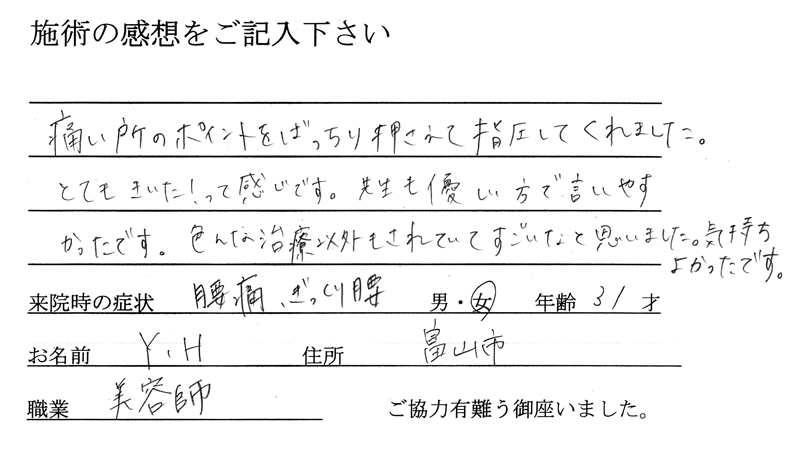 施術の感想をご記入下さい
痛い所のポイントをばっちり押さえて指圧してくれました。
とてもきいた！って感じです。先生も優しい方で言いやす
かったです。色んな治療以外もされていてすごいなと思いました。気持ち
よかったです。
来院時の症状 腰痛、ぎっくり腰 男・女 年齢 31 才
お名前 Y、H 住所 富山市
職業 美容師 ご協力有難う御座いました。